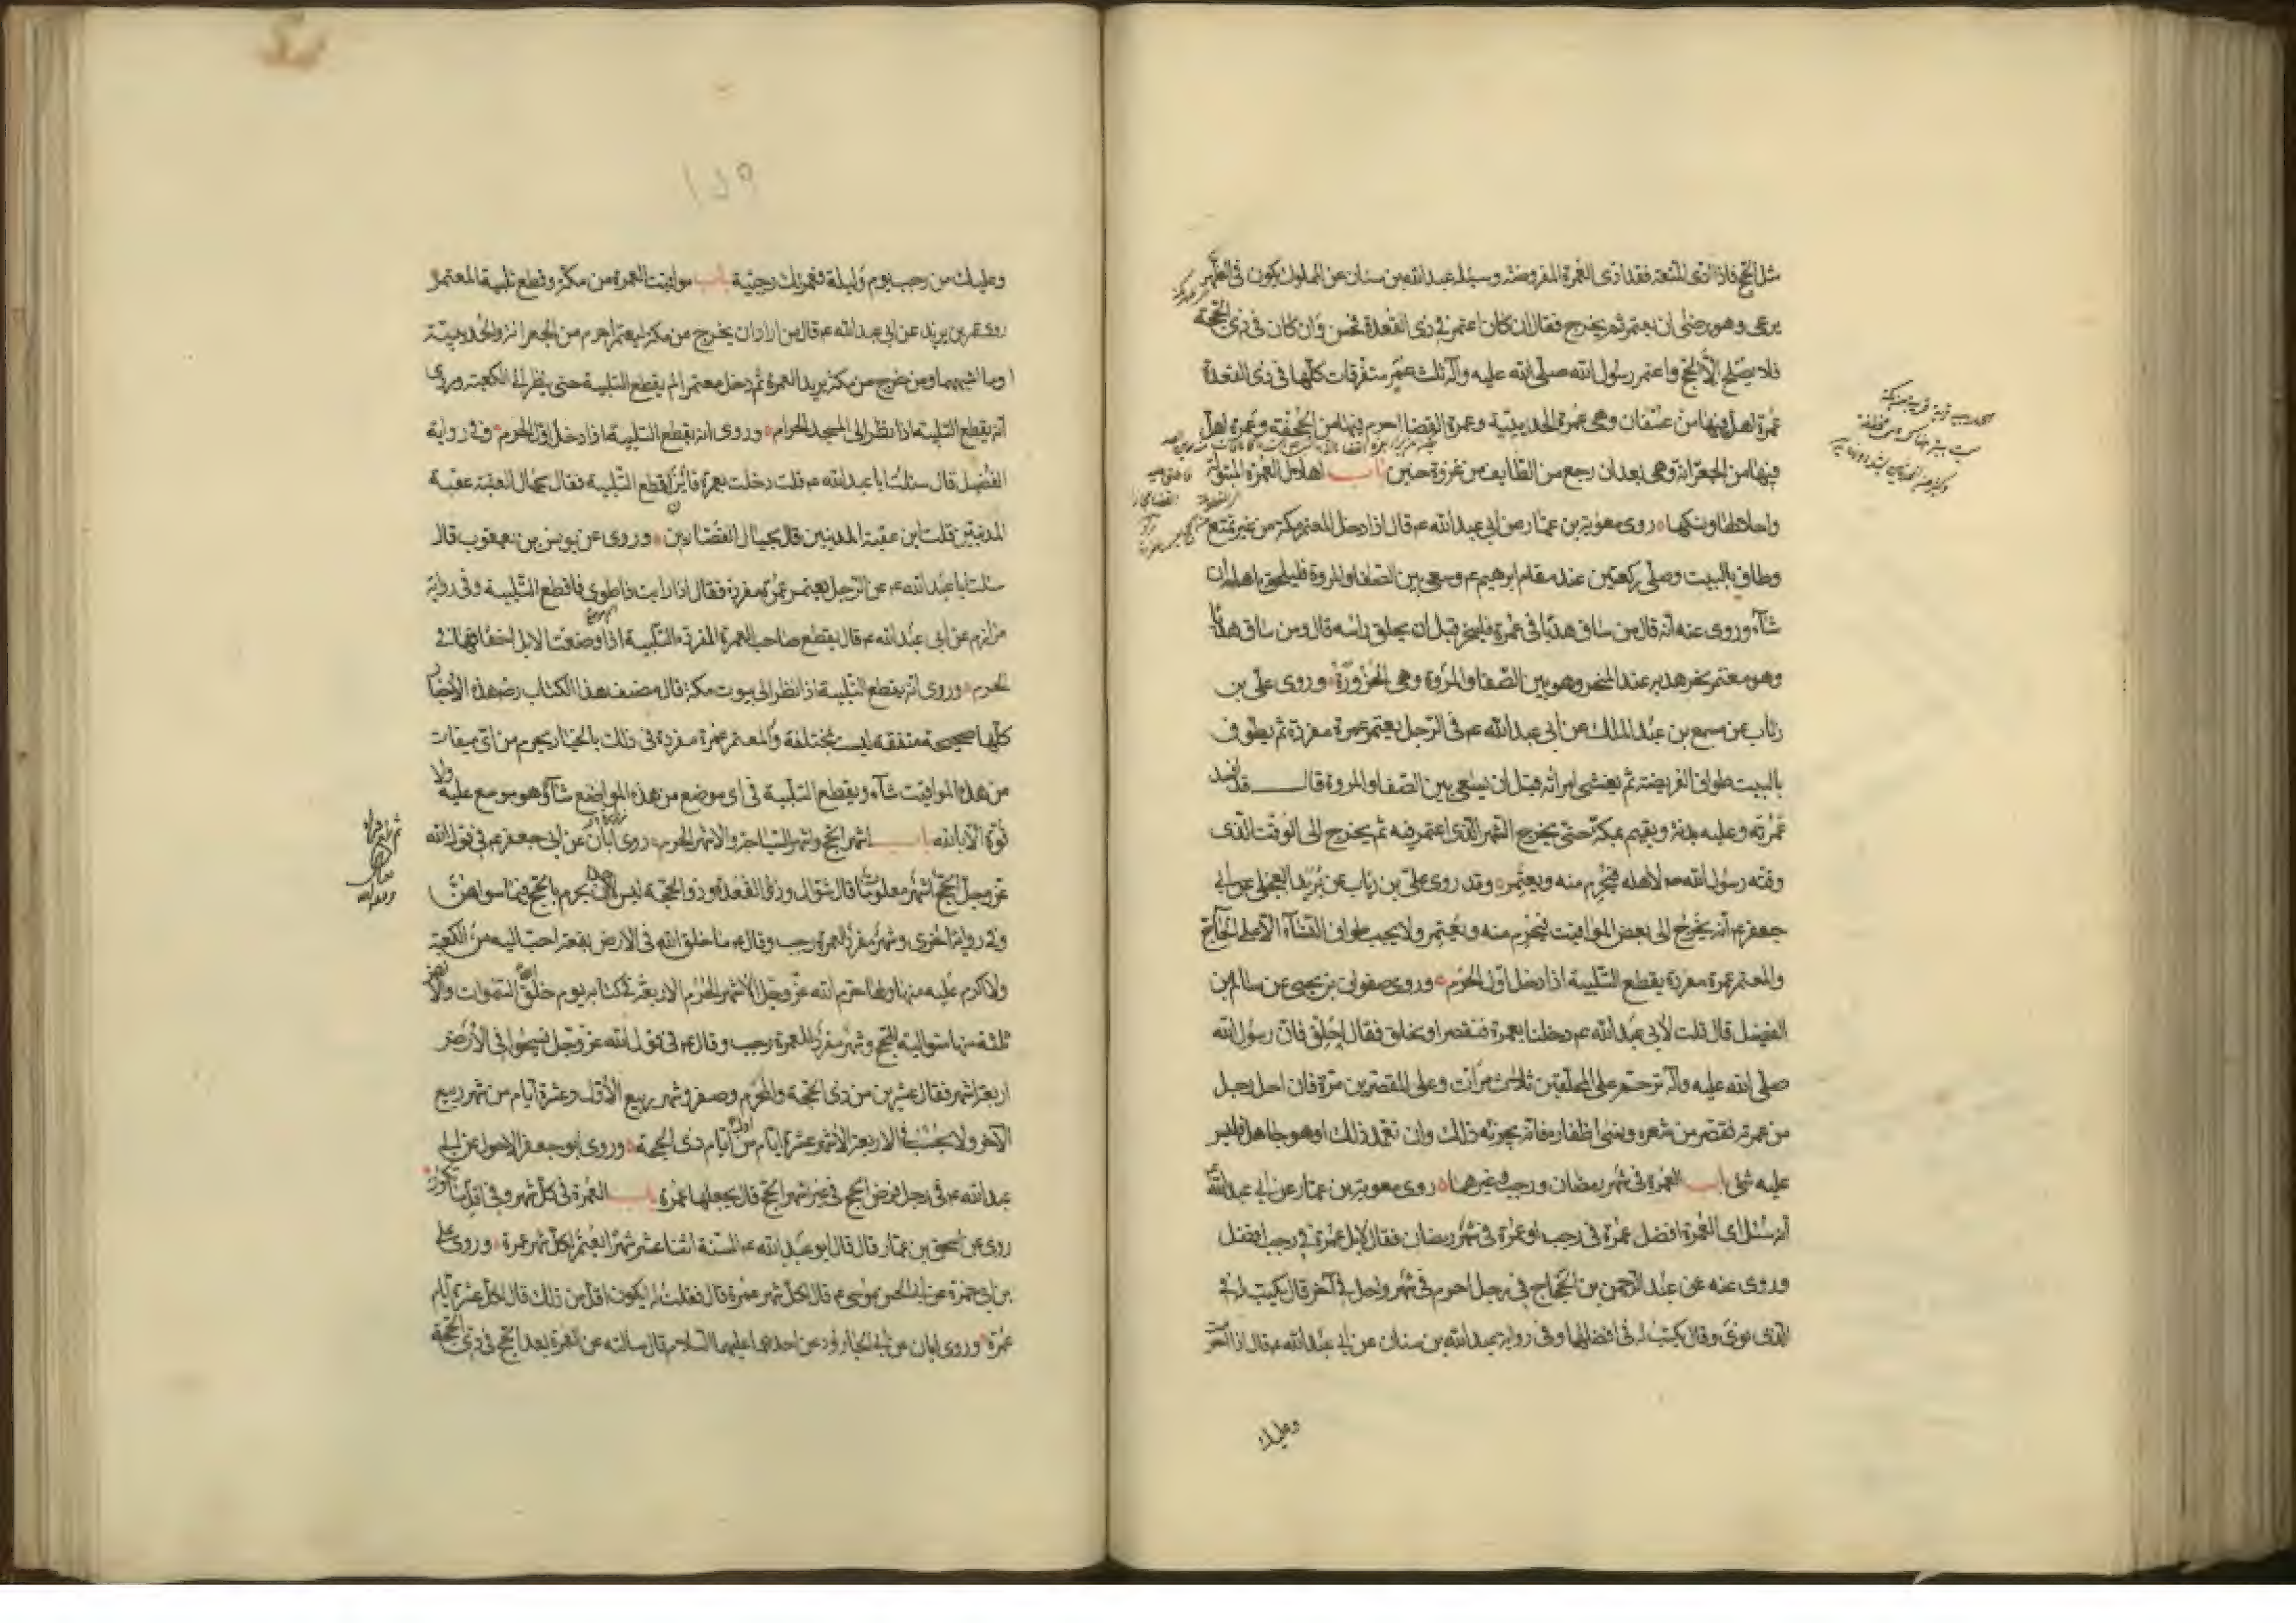 مثل الحج فاذا ادّى المتعة فقد ادّى العمرة المفروضة وسئله عبدالله بن سنان عن المملوك يكون فى الظّهر
يرعى وهو يرضى ان يعتمر ثم يخرج فقال ان كان اعتمر فى ذى القعدة فحسن وان كان فى ذى الحجّة
فلا يصلح الّا الحجّ واعتمر رسول الله صلّى الله عليه وآله ثلث عمر متفرقات كلّها فى ذى القعدة
عمرة اهلّ فيها من عسفان وهى عمرة الحديبيّة وعمرة القضا احرم فيها من الجحفة وعمرة اهلّ
فيها من الجعرانة وهى بعد ان رجع من الطايف من غزوة حنين باب اهلال العمرة المبتولة
واحلالها ونسكها روى معوية بن عمّار عن ابى عبدالله ع م قال اذا دخل المعتمر مكة من غير تمتع
وطاف بالبيت وصلّى ركعتين عند مقام ابرهيم ع م وسعى بين الصّفا والمروة فليلحق باهله ان
شآء وروى عنه انّه قال من ساق هديا فى عمرة فلينحر قبل ان يحلق راسه قال ومن ساق هديًا
وهو معتمر نحر هديه عند المنحر وهو بين الصّفا والمروة وهى الحزورة وروى علىّ بن
رئاب عن مسمع بن عبد الملك عن ابى عبدالله ع م فى الرّجل يعتمر عمرة مفردة ثم يطوف
بالبيت طواف الفريضة ثم يغشى امراته قبل ان يسعى بين الصّفا والمروة قال قد افسد
عمرته وعليه بدنة ويقيم بمكة حتّى يخرج الشهر الذى اعتمر فيه ثم يخرج الى الوقت الّذى
وقّته رسول الله ص لاهله فيحرم منه ويعتمر وقد روى علىّ بن رئاب عن بُريد العجلى عن ابى
جعفر ع م انّه يخرج الى بعض المواقيت فيحرم منه ويعتمر ولا يجب طواف النّسآء الّا على الحاجّ
والمعتمر عمرة مفردة يقطع التّلبية اذا دخل اوّل الحرم وروى صفوان بن يحيى عن سالم بن
الفضيل قال قلت لابى عبدالله ع م دخلنا بعمرة فنقصر او نحلق فقال احلق فانّ رسول الله
صلّى الله عليه وآله ترحّم على المحلّقين ثلاث مرّات وعلى المقصّرين مرّة فان احل رجل
من عمرته فقصّر من شعره ونسى اظفاره فانّه يجزئه ذلك وان تعمّد ذلك او هو جاهل فليس
عليه شئ باب العمرة فى شهر رمضان ورجب وغيرهما روى معوية بن عمّار عن ابى عبدالله ع م
انّه سُئل اى العمرة افضل عمرة فى رجب او عمرة فى شهر رمضان فقال لا بل عمرة فى رجب افضل
وروى عنه عن عبد الرّحمن بن الحجّاج فى رجل احرم فى شهر واحل فى آخر قال يكتب له فى
الّذى نوى وقال يكتب له فى افضلهما وفى رواية عبدالله بن سنان عن ابى عبدالله ع م قال اذا احرمت
وعليك
١٥٩
وعليك من رجب يوم وليلة فعمرتك رجبيّة باب مواقيت العمرة من مكة وقطع تلبية المعتمر
روى عمر بن يزيد عن ابى عبدالله ع م قال من اراد ان يخرج من مكة ليعتمر احرم من الجعرانة والحديبيّة
او ما اشبههما ومن خرج من مكة يريد العمرة ثم دخل معتمرا لم يقطع التلبية حتى ينظر الى الكعبة وروى
انّه يقطع التلبية اذا نظر الى المسجد الحرام وروى انه يقطع التلبية اذا دخل اوّل الحرم وفى رواية
الفضيل قال سئلت ابا عبدالله ع م قلت دخلت بعمرة فاين اقطع التّلبية فقال بحيال العقبة عقبة
المدنيّين قلت اين عقبة المدنيين قال بحيال القصّارين وروى عن يونس بن يعقوب قال
سئلت ابا عبدالله ع م عن الرّجل يعتمر عمرة مفردة فقال اذا رايت ذا طوى فاقطع التّلبية وفى رواية
مرازم عن ابى عبدالله ع م قال يقطع صاحب العمرة المفردة التّلبية اذا وضعت الابل اخفافها فى
الحرم وروى انّه يقطع التّلبية اذا نظر الى بيوت مكة قال مصنف هذا الكتاب رض هذه الاخبار
كلّها صحيحة متفقة ليست بمختلفة والمعتمر عمرة مفردة فى ذلك بالخيار يحرم من اىّ ميقات
من هذه المواقيت شآء ويقطع التلبية فى اى موضع من هذه المواضع شآء وهو موسع عليه ولا
قوّة الّا بالله باب اشهر الحجّ واشهر السّياحة والاشهر الحرم روى ابان عن ابى جعفر ع م فى قول الله
عزوجلّ الحجّ اشهر معلومات قال شوّال وذو القعدة وذو الحجّة ليس لاحد ان يحرم بالحجّ فيما سواهنّ
وفى رواية اخرى وشهر مفرد للعمرة رجب وقال ع م ما خلق الله فى الارض بقعة احبّ اليه من الكعبة
ولا اكرم عليه منها ولها حرّم الله عزّوجلّ الاشهر الحُرم الاربعة فى كتابه يوم خلق الله السّموات والارض
ثلثة منها متوالية للحجّ وشهر مفرد للعمرة رجب وقال ع م فى قول الله عزّوجلّ فسيحوا فى الارض
اربعة اشهر فقال عشرين من ذى الحجّة والمحرّم وصفر وشهر ربيع الاوّل وعشرة ايّام من شهر ربيع
الآخر ولا يحسب فى الاربعة الاشهر عشرة ايّام من اول ايّام ذى الحجّة وروى ابو جعفر الاحول عن ابى
عبدالله ع م فى رجل فرض الحج فى غير اشهر الحجّ قال يجعلها عمرة باب العمرة فى كلّ شهر وفى اقلّ ما تكون
روى عن اسحق بن عمّار قال قال ابو عبدالله ع م السّنة اثنا عشر شهرًا يعتمر لكلّ شهر عمرة وروى على
بن ابى حمزة عن ابى الحسن موسى ع م قال لكلّ شهر عمرة قال فقلت له ايكون اقلّ من ذلك قال لكلّ عشرة ايّام
عمرة وروى ابان عن ابى الجارود عن احدهما عليهما السّلام قال سالته عن العمرة بعد الحجّ فى ذى الحجّة